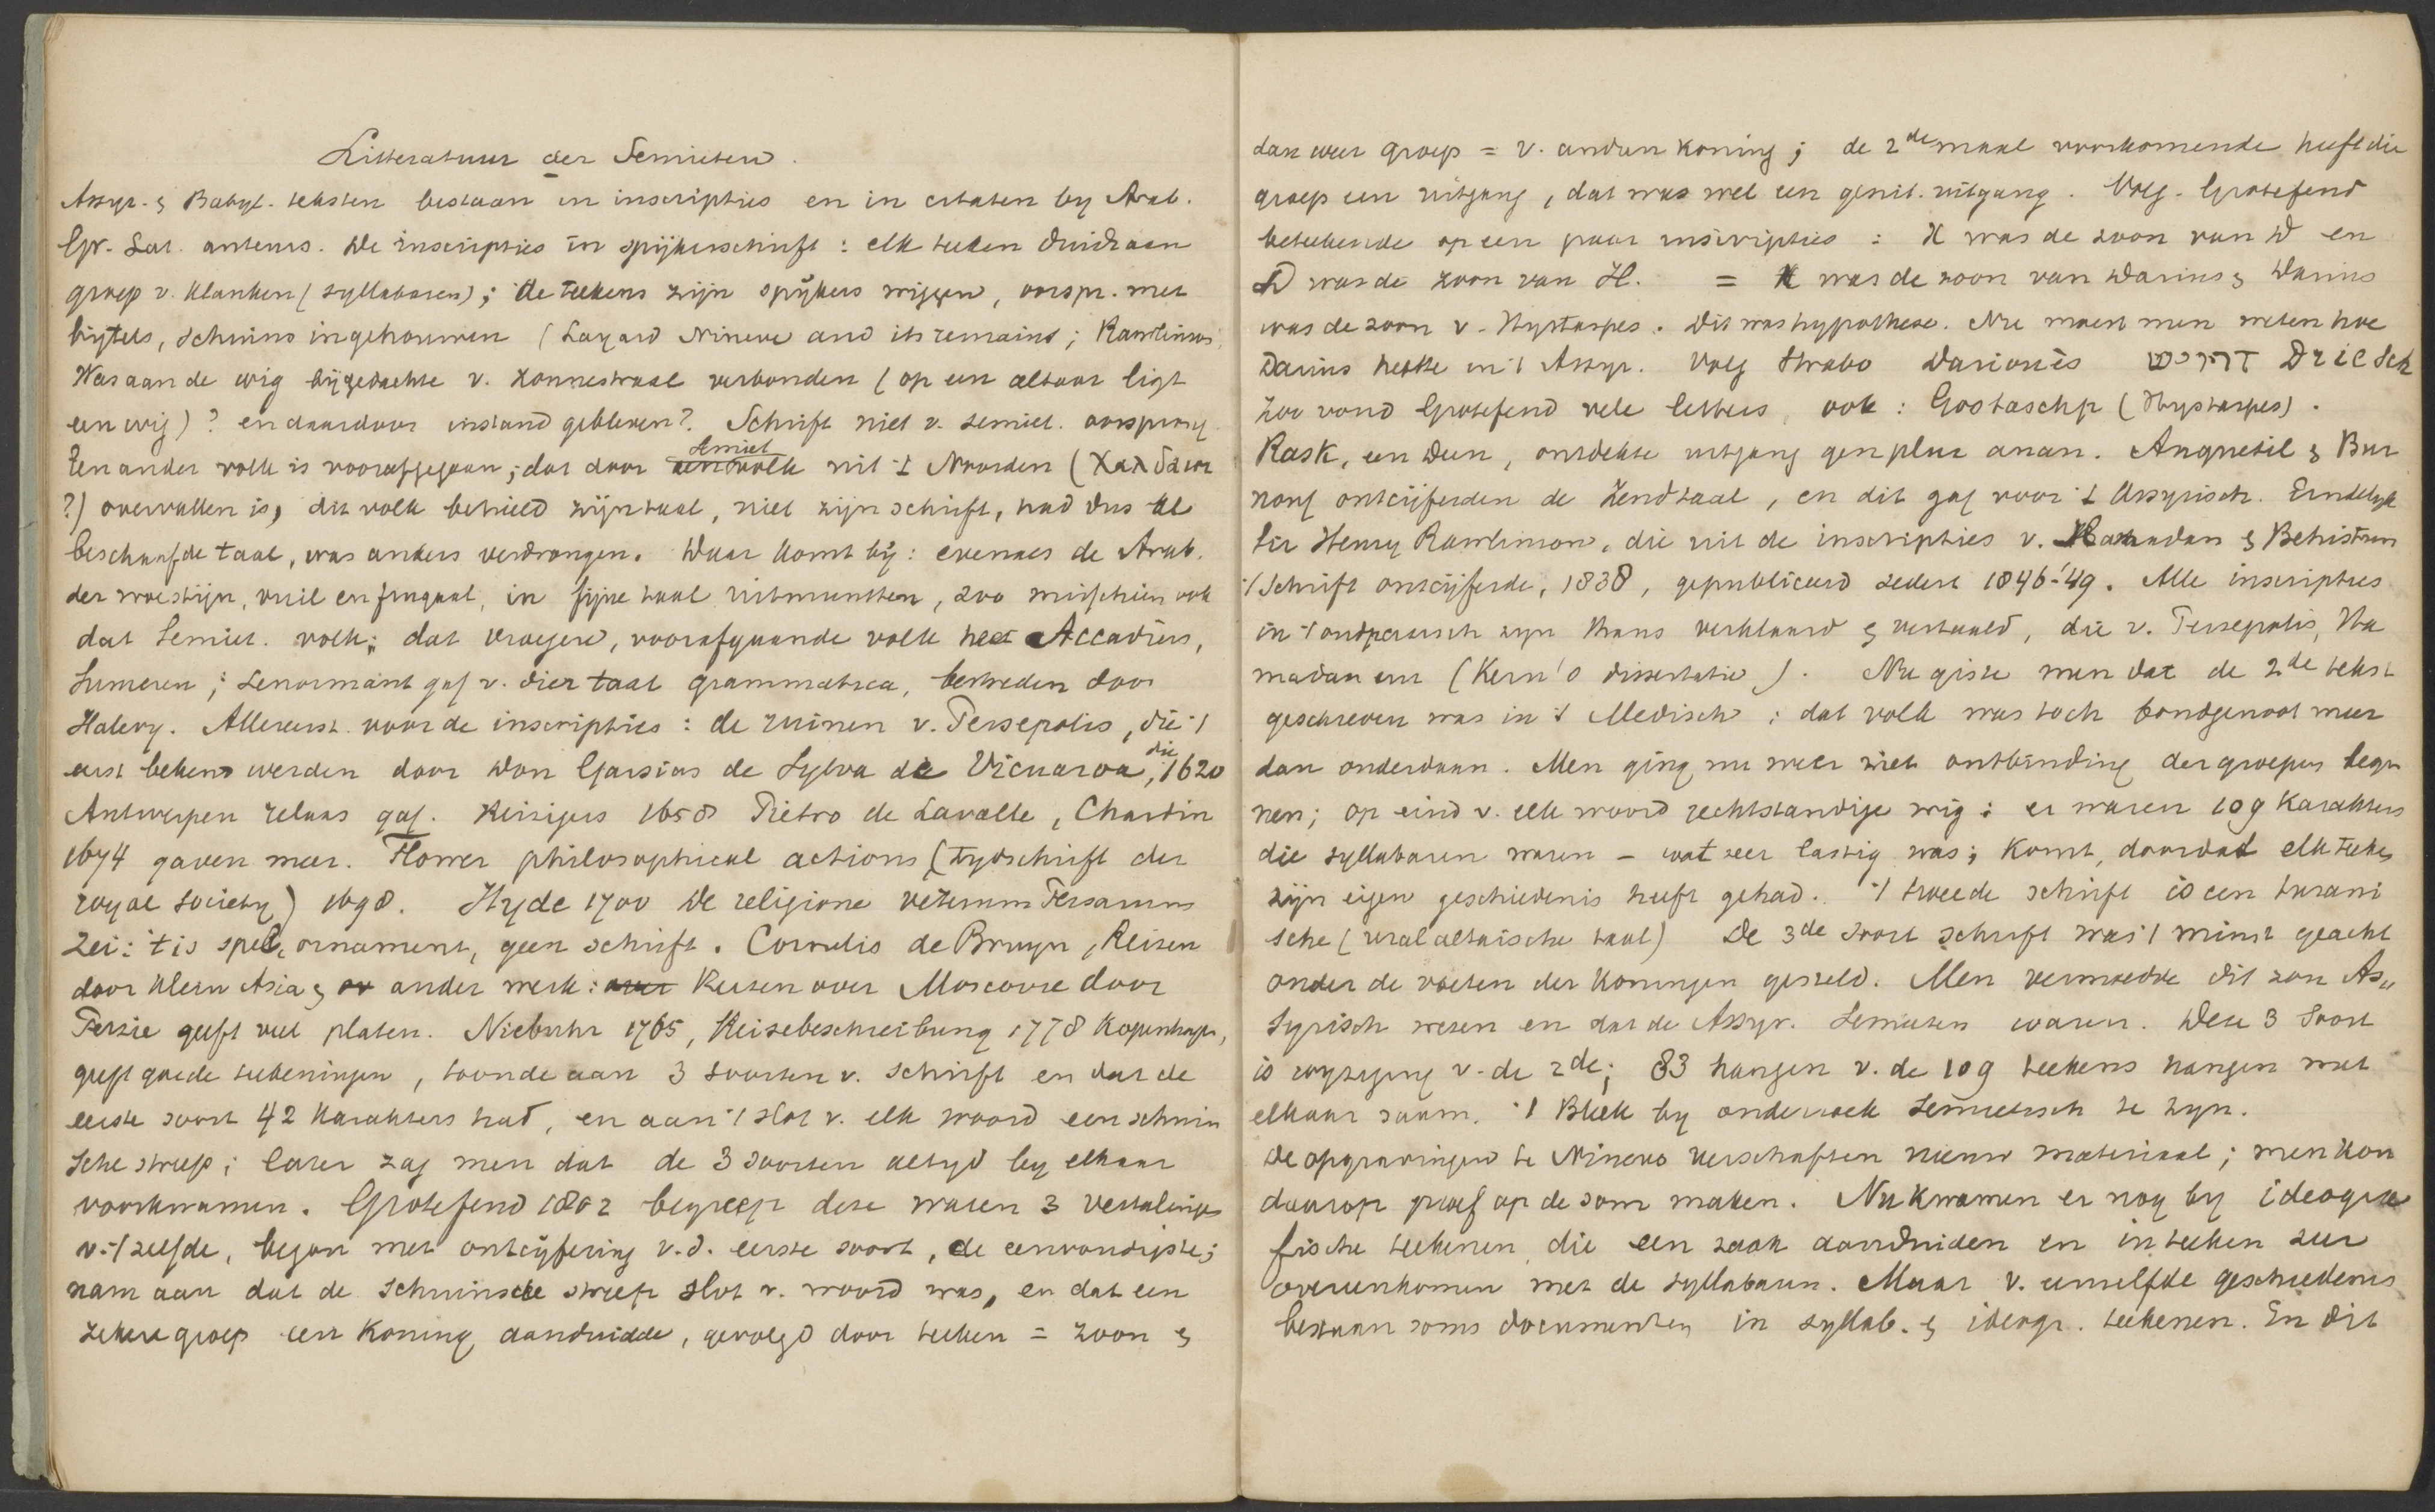 Litteratuur der Semieten.
Assyr. & Babyl. teksten bestaan in inscripties en in citaten by Arab.
Gr. Lat. auteurs. De inscripties in spijkerschrift: elk teeken duidt aan
groep v. klanken (syllabaren); de teekens zijn spijkers wiggen, oorspr. met
bijtels, schuins ingehouwen (Layard Nineve and its remains; Rawlinson,
Was aan de wig bijgedachte v. zonnestraal verbonden (op een altaar ligt
een wig)? en daardoor instand gebleven? Schrift niet v. semiet. oorsprong
Een ander volk is voorafgegaan, dat door semiet volk uit 't Noorden (Χαλδαιοι
?) overvallen is, dit volk behield zijn taal, niet zijn schrift, had dus al
beschaafde taal, was anders verdrongen. Daar komt bij: evenals de Arab.
der woestijn, vuil en frugaal, in fijne taal uitmuntten, zoo misschien ook
dat Semiet. volk; dat vroegere, voorafgaande volk heet Accadiers,
Sumeren; Lenormant gaf v. dier taal grammatica, bestreden door
Halevy. Allereerst voor de inscripties: de ruinen v. Persepolis, die 't
eerst bekend werden door Don Garsias de Sylva de Vicuaroa, die 1620
Antwerpen relaas gaf. Reizigers 1658 Pietro de Lavalle, Chardin
1674 gaven meer. Flower philosophical actions (tydschrift der
royal society) 1698. Hyde 1700 De religione veterum Persarum
zei: 't is spel, ornament, geen schrift. Cornelis de Bruyn, Reizen
door klein Asia & ander werk: over Reizen over Moscovie door
Perzie geeft veel platen. Niebuhr 1765, Reisebeschreibung 1778 Kopenhagen,
geeft goede teekeningen, toonde aan 3 soorten v. schrift en dat de
eerste soort 42 karakters had, en aan 't slot v. elk woord een schuin
sche streep; later zag men dat de 3 soorten altyd by elkaar
voorkwamen. Grotefend 1802 begreep deze waren 3 vertalingen
v. 't zelfde, begon met ontcijfering v.d. eerste soort, de eenvoudigste;
nam aan dat de schuinsche streep slot v. woord was, en dat een
zekere groep een Koning aanduidde, gevolgd door teeken = zoon &
dan weer groep = v. anderen koning; de 2de maal voorkomende heeft die
groep een uitgang, dat was wel een genit. uitgang. Volg. Grotefend
beteekende op een paar inscripties: X was de zoon van D en
D was de zoon van H. = X was de zoon van Darius & Darius
was de zoon v. Hystaspes. Dit was hypothese. Nu moest men weten hoe
Darius heette in 't Assyr. Volg Strabo Dariouès דריוש Driesch
Zoo vond Grotefend vele letters, ook: Gostaschp (Hystaspes).
Rask, een Deen, ontdekte uitgang gen plur anan. Anquetil & Bur
nouf ontcijferden de Zendtaal, en dit gaf voor 't Assyrisch. Eindelyk
Sir Henry Rawlinson, die uit de inscripties v. Hamadan & Behistun
't schrift ontcijferde, 1838, gepubliceerd sedert 1846-'49. Alle inscripties
in 't oudperzisch zyn thans verklaard & vertaald, die v. Persepolis, Ha
madan enz (Kern's dissertatie). Nu giste men dat de 2de tekst
geschreven was in 't Medisch; dat volk was toch bondgenoot meer
dan onderdaan. Men ging nu weer met ontbinding der groepen begin
nen; op eind v. elk woord rechtstandige wig: er waren 109 karakters
die syllabaren waren - wat zeer lastig was; komt, doordat elk teeken
zijn eigen geschiedenis heeft gehad. 't tweede schrift is een turani
sche (uralaltaische taal) De 3de soort schrift was 't minst geacht
onder de voeten der Koningen gesteld. Men vermoedde dit zou As„
syrisch wezen en dat de Assyr. Semieten waren. Deze 3 soort
is wyziging v. de 2de; 83 hangen v. de 109 teekens hangen met
elkaar saam. 't Bleek by onderzoek Semietisch te zyn.
De opgravingen te Nineve verschaften nieuw materiaal; men kon
daarop proef op de som maken. Nu kwamen er nog by ideogra
fische teekenen die een zaak aanduiden en in teeken zeer
overeenkomen met de syllabaren. Maar v. eenzelfde geschiedenis
bestaan soms documenten in syllab. & ideogr. teekenen. En dit